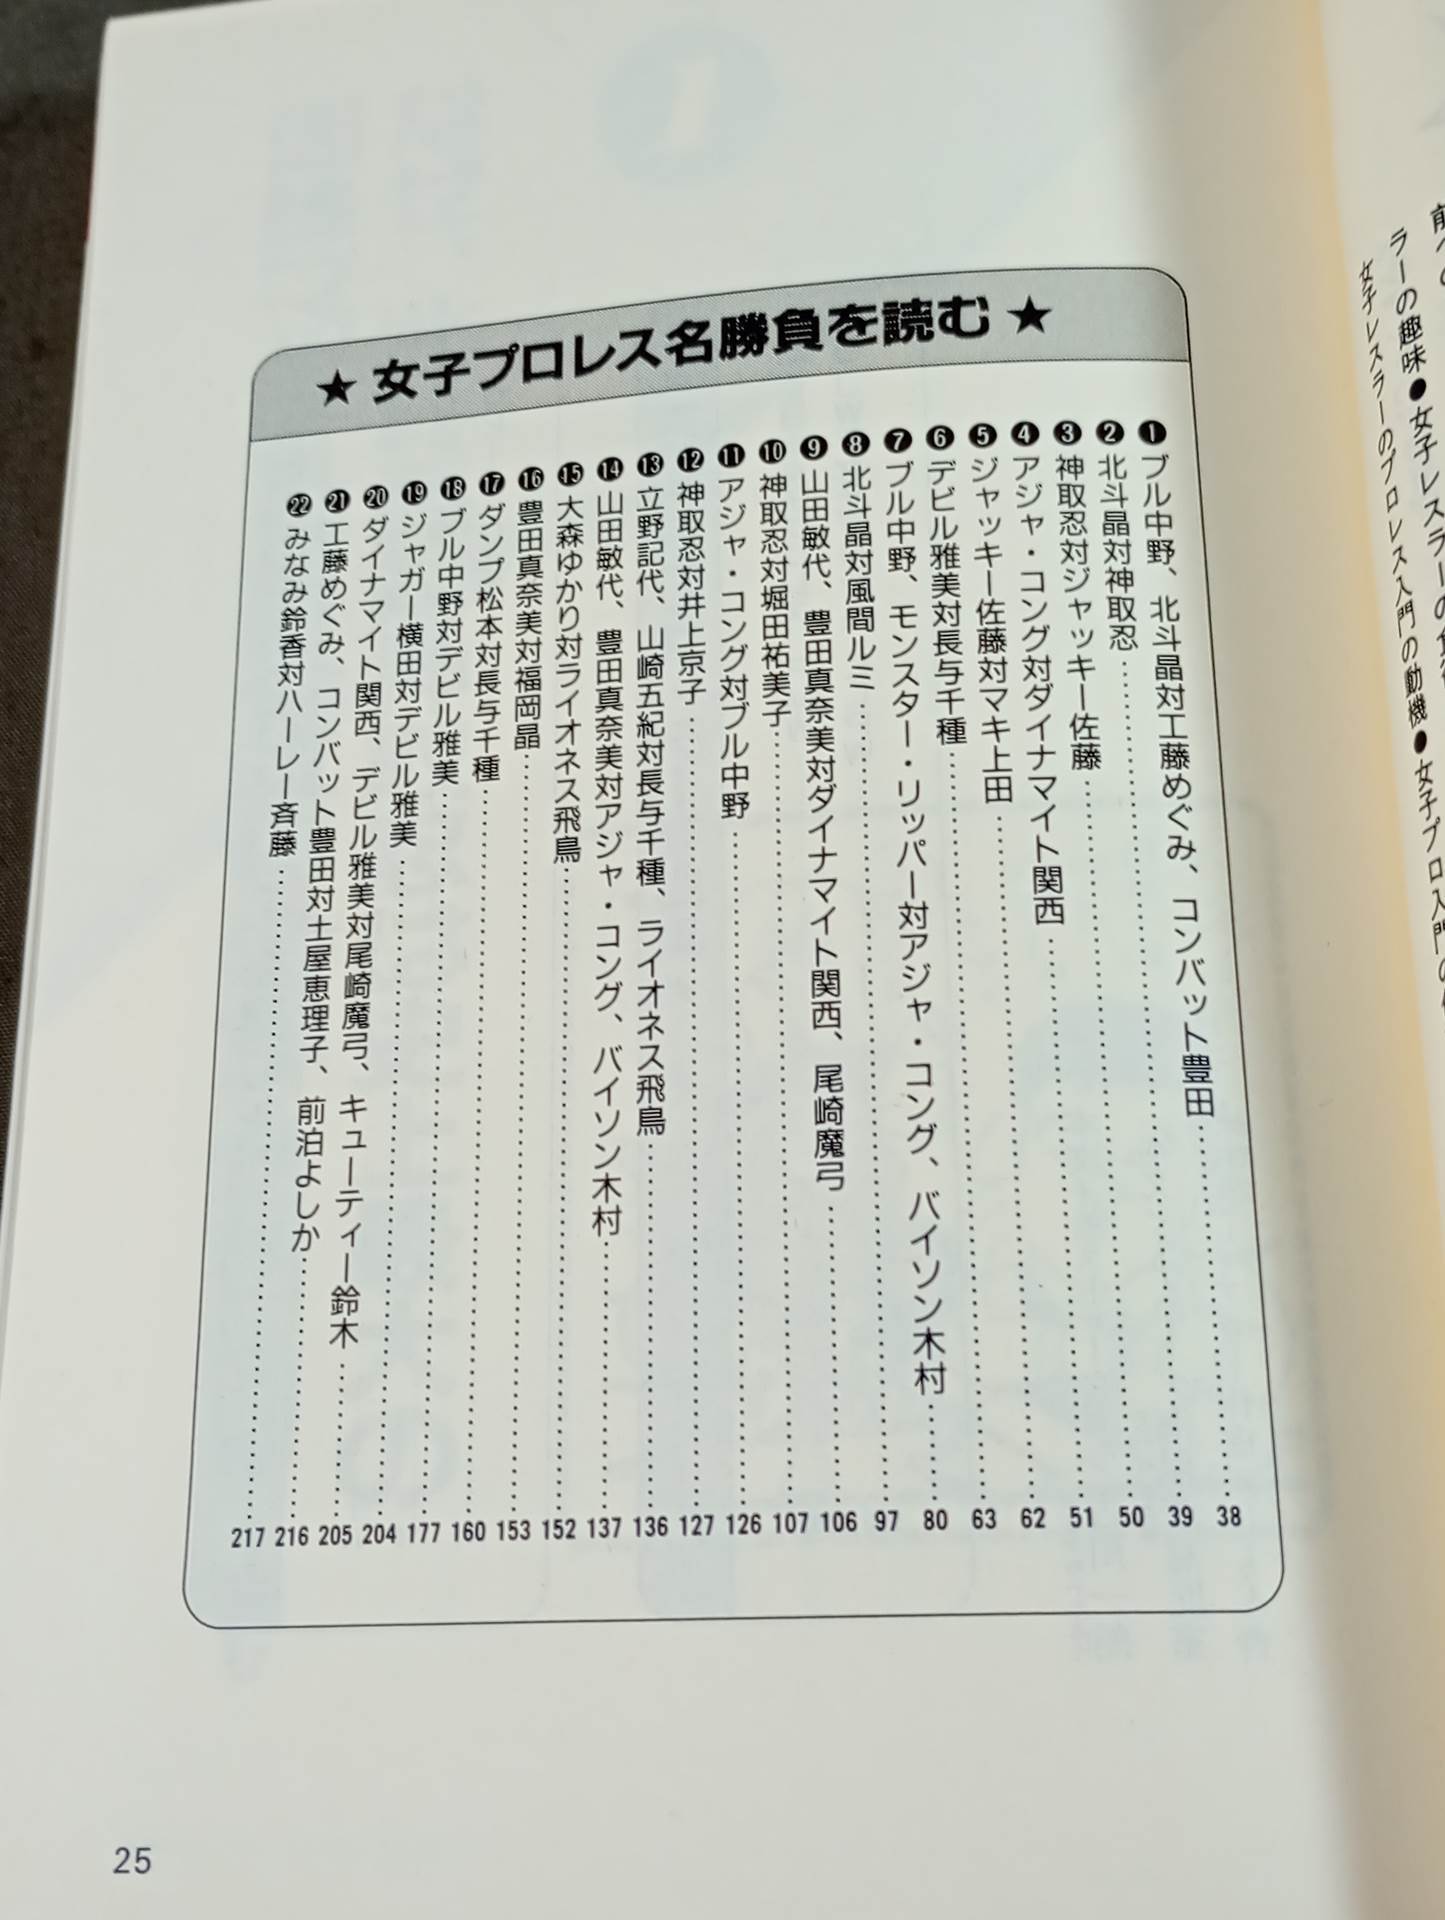 前
ラーの趣味●女子レスラーの
女子レスラーのプロレス入門の動機●女子プロ入門の
★女子プロレス名勝負を読む★
❶ブル中野、北斗晶対工藤めぐみ、コンバット豊田……38
❷北斗晶対神取忍……39
❸神取忍対ジャッキー佐藤……50
❹アジャ・コング対ダイナマイト関西……51
❺ジャッキー佐藤対マキ上田……62
❻デビル雅美対長与千種……63
❼ブル中野、モンスター・リッパー対アジャ・コング、バイソン木村……80
❽北斗晶対風間ルミ……97
❾山田敏代、豊田真奈美対ダイナマイト関西、尾崎魔弓……106
❿神取忍対堀田祐美子……107
⓫アジャ・コング対ブル中野……126
⓬神取忍対井上京子……127
⓭立野記代、山崎五紀対長与千種、ライオネス飛鳥……136
⓮山田敏代、豊田真奈美対アジャ・コング、バイソン木村……137
⓯大森ゆかり対ライオネス飛鳥……152
⓰豊田真奈美対福岡晶……153
⓱ダンプ松本対長与千種……160
⓲ブル中野対デビル雅美……177
⓳ジャガー横田対デビル雅美……204
⓴ダイナマイト関西、デビル雅美対尾崎魔弓、キューティー鈴木……205
㉑工藤めぐみ、コンバット豊田対土屋恵理子、前泊よしか……216
㉒みなみ鈴香対ハーレー斉藤……217
25